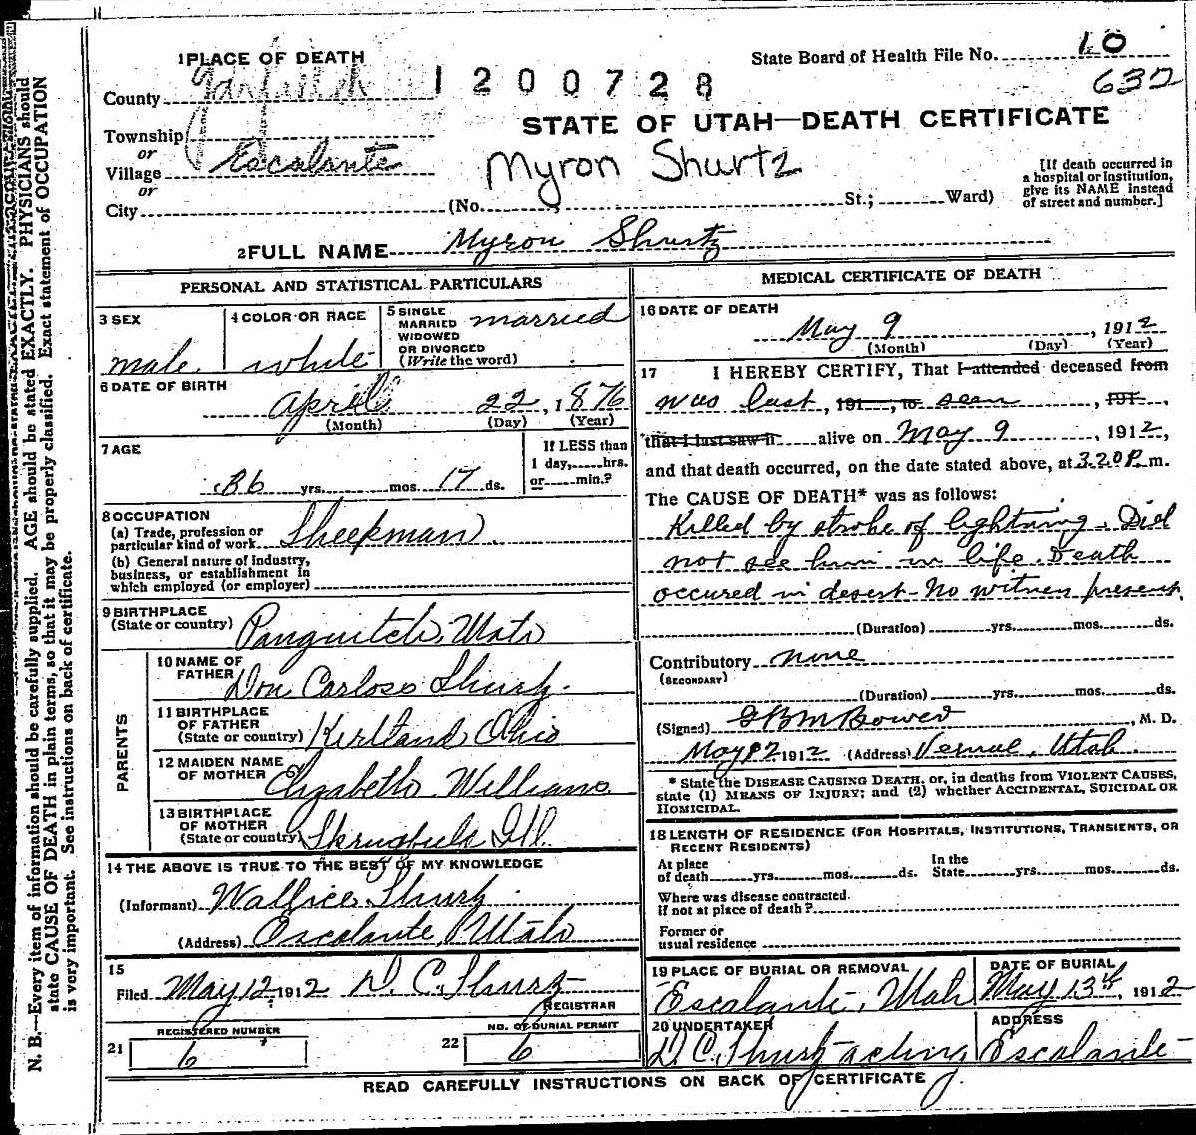 1 PLACE OF DEATH
State Board of Health File No. 10
632
County Garfield
1200728
STATE OF UTAH—DEATH CERTIFICATE
Township
or
Village Escalante
Myron Shurtz
or
City (No. St.; Ward)
[If death occurred in
a hospital or institution,
give its NAME instead
of street and number.]
2 FULL NAME Myron Shurtz
PERSONAL AND STATISTICAL PARTICULARS
3 SEX
male
4 COLOR OR RACE
white
5 SINGLE
MARRIED
WIDOWED
OR DIVORCED
(Write the word)
married
6 DATE OF BIRTH
April 22, 1876
(Month) (Day) (Year)
7 AGE
36 yrs. mos. 17 ds.
If LESS than
1 day, hrs.
or min.?
8 OCCUPATION
(a) Trade, profession or
particular kind of work Sheepman
(b) General nature of industry,
business, or establishment in
which employed (or employer)
9 BIRTHPLACE
(State or country) Panguitch, Utah
PARENTS
10 NAME OF
FATHER Don Carloso Shurtz.
11 BIRTHPLACE
OF FATHER
(State or country) Kirtland Ohio
12 MAIDEN NAME
OF MOTHER Elizabeth Williams
13 BIRTHPLACE
OF MOTHER
(State or country) Ill.
14 THE ABOVE IS TRUE TO THE BEST OF MY KNOWLEDGE
(Informant) Wallice Shurtz
(Address) Escalante, Utah
15
Filed May 12, 1912 D. C. Shurtz
REGISTRAR
REGISTERED NUMBER
21 6
NO. OF BURIAL PERMIT
22 6
MEDICAL CERTIFICATE OF DEATH
16 DATE OF DEATH
May 9, 1912
(Month) (Day) (Year)
17 I HEREBY CERTIFY, That I attended deceased from
was last, 191, to seen, 191,
that I last saw h alive on May 9, 1912,
and that death occurred, on the date stated above, at 3.20 P. m.
The CAUSE OF DEATH* was as follows:
Killed by stroke of lightning. Did
not see him in life. Death
occured in desert - No witness present.
(Duration) yrs. mos. ds.
Contributory none
(SECONDARY)
(Duration) yrs. mos. ds.
(Signed) , M. D.
May 12 1912 (Address) Vernal, Utah.
* State the DISEASE CAUSING DEATH, or, in deaths from VIOLENT CAUSES,
state (1) MEANS OF INJURY; and (2) whether ACCIDENTAL, SUICIDAL OR
HOMICIDAL.
18 LENGTH OF RESIDENCE (FOR HOSPITALS, INSTITUTIONS, TRANSIENTS, OR
RECENT RESIDENTS)
At place
of death yrs. mos. ds.
In the
State yrs. mos. ds.
Where was disease contracted.
if not at place of death?
Former or
usual residence
19 PLACE OF BURIAL OR REMOVAL
Escalante, Utah
DATE OF BURIAL
May 13th, 1912
20 UNDERTAKER
D. C. Shurtz acting
ADDRESS
Escalante
READ CAREFULLY INSTRUCTIONS ON BACK OF CERTIFICATE
N. B.—Every item of information should be carefully supplied. AGE should be stated EXACTLY. PHYSICIANS should
state CAUSE OF DEATH in plain terms, so that it may be properly classified. Exact statement of OCCUPATION
is very important. See instructions on back of certificate.